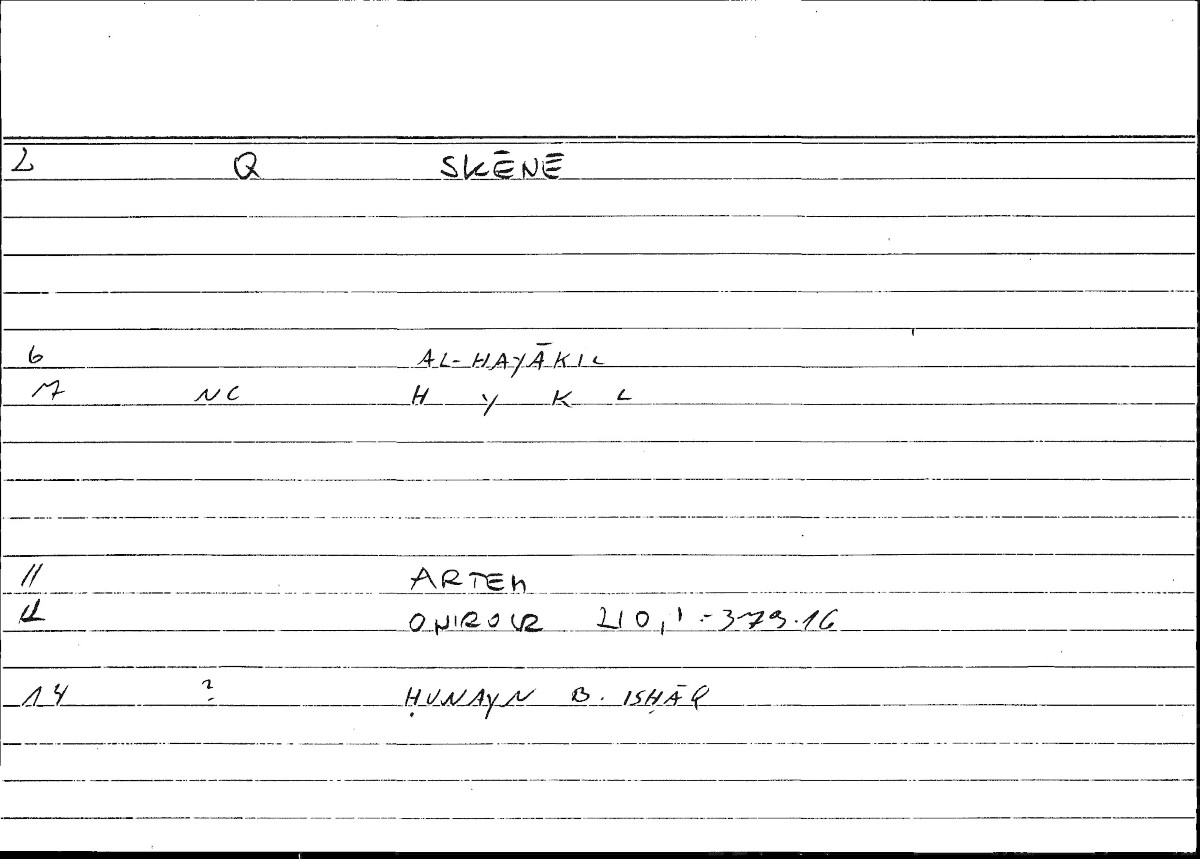 2 Q SKĒNĒ
6 AL-HAYĀKIL
7 NC H Y K L
11 ARTEM
12 ONIROCR 210,1-379.16
14 ? ḤUNAYN B. ISḤĀQ